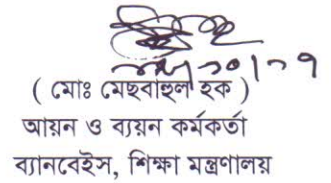 ( মোঃ মেছবাহুল হক )
আয়ন ও ব্যয়ন কর্মকর্তা
ব্যানবেইস, শিক্ষা মন্ত্রণালয়